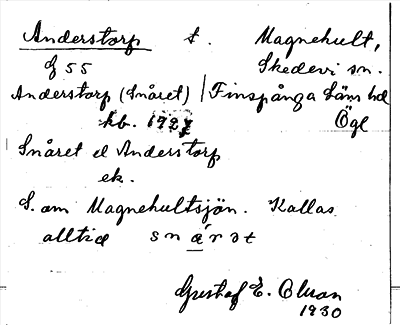 Anderstorp t. Magnehult,
Skedevi sn.
Gf 55
Anderstorp (Snåret) | Finspånga läns hd
kb. 1927 Ögl
Snåret el Anderstorp
ek.
S. om Magnehultsjön. Kallas
alltid snærət
Gustaf E. Olsson
1930